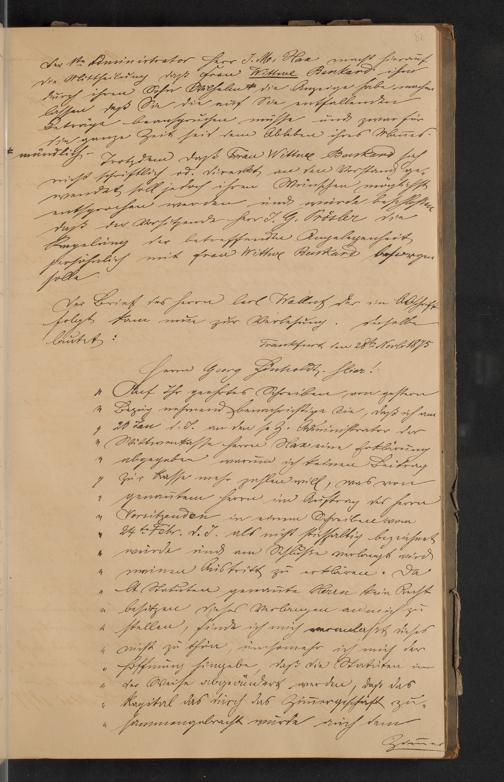 Der Administrator Herr J. Mos. Haa macht hierauf
die Mittheilung daß Frau Wittwe Burkard ihm
durch ihren Sohn Wilhelm * die Anzeige habe machen
lassen daß Sie die auf Sie entfallenden
Beträge beanspruchen müsse und zwar für
die ganze Zeit seit dem Ableben ihres Mannes.
* mündlich Trotzdem daß Frau Wittwe Burkard sich
nicht schriftlich od. direkt an den Vorstand ge-
wendet soll jedoch ihren Wünschen möglichst
entsprochen werden, und wurde beschlossen
daß der Vorsitzende Herr J. G. die
Regelung der betreffenden Angelegenheit
persönlich mit Frau Wittwe Burkard besorgen
solle.
Der Brief des Herrn Carl der in Abschrift
folgt kam nun zur Verlesung. Derselbe
lautet:
Frankfurt, den 28ten 1875
Herrn Georg Hier!
" Auf Ihr geehrtes Schreiben von gestern
" Bezug nehmend benachrichtige Sie, daß ich am
" 20 Jan d. J. an den Administrator der
" Wittwenkasse Herrn Haa eine Erklärung
" abgegeben warum ich keinen Beitrag
" zur Kasse mehr zahlen will, was von
" genanntem Herrn im Auftrag des Herrn
" Vorsitzenden in einem Schreiben vom
" 24ten Febr. d. J. als nicht stichhaltig bezeichnet
" wurde und am Schlusse verlangt wird
" meinen Austritt zu erklären. Da
" lt Statuten genannte Herrn kein Recht
" besitzen dieses Verlangen an mich zu
" stellen, finde ich mich veranlaßt dieses
" nicht zu thun, umsomehr ich mich der
" Hoffnung hingebe, daß die Statuten in
" der Weise abgeändert werden, daß das
" Kapital das durch das Zimmergeschäft zu-
" sammengebracht wurde auch dem
Zimmer